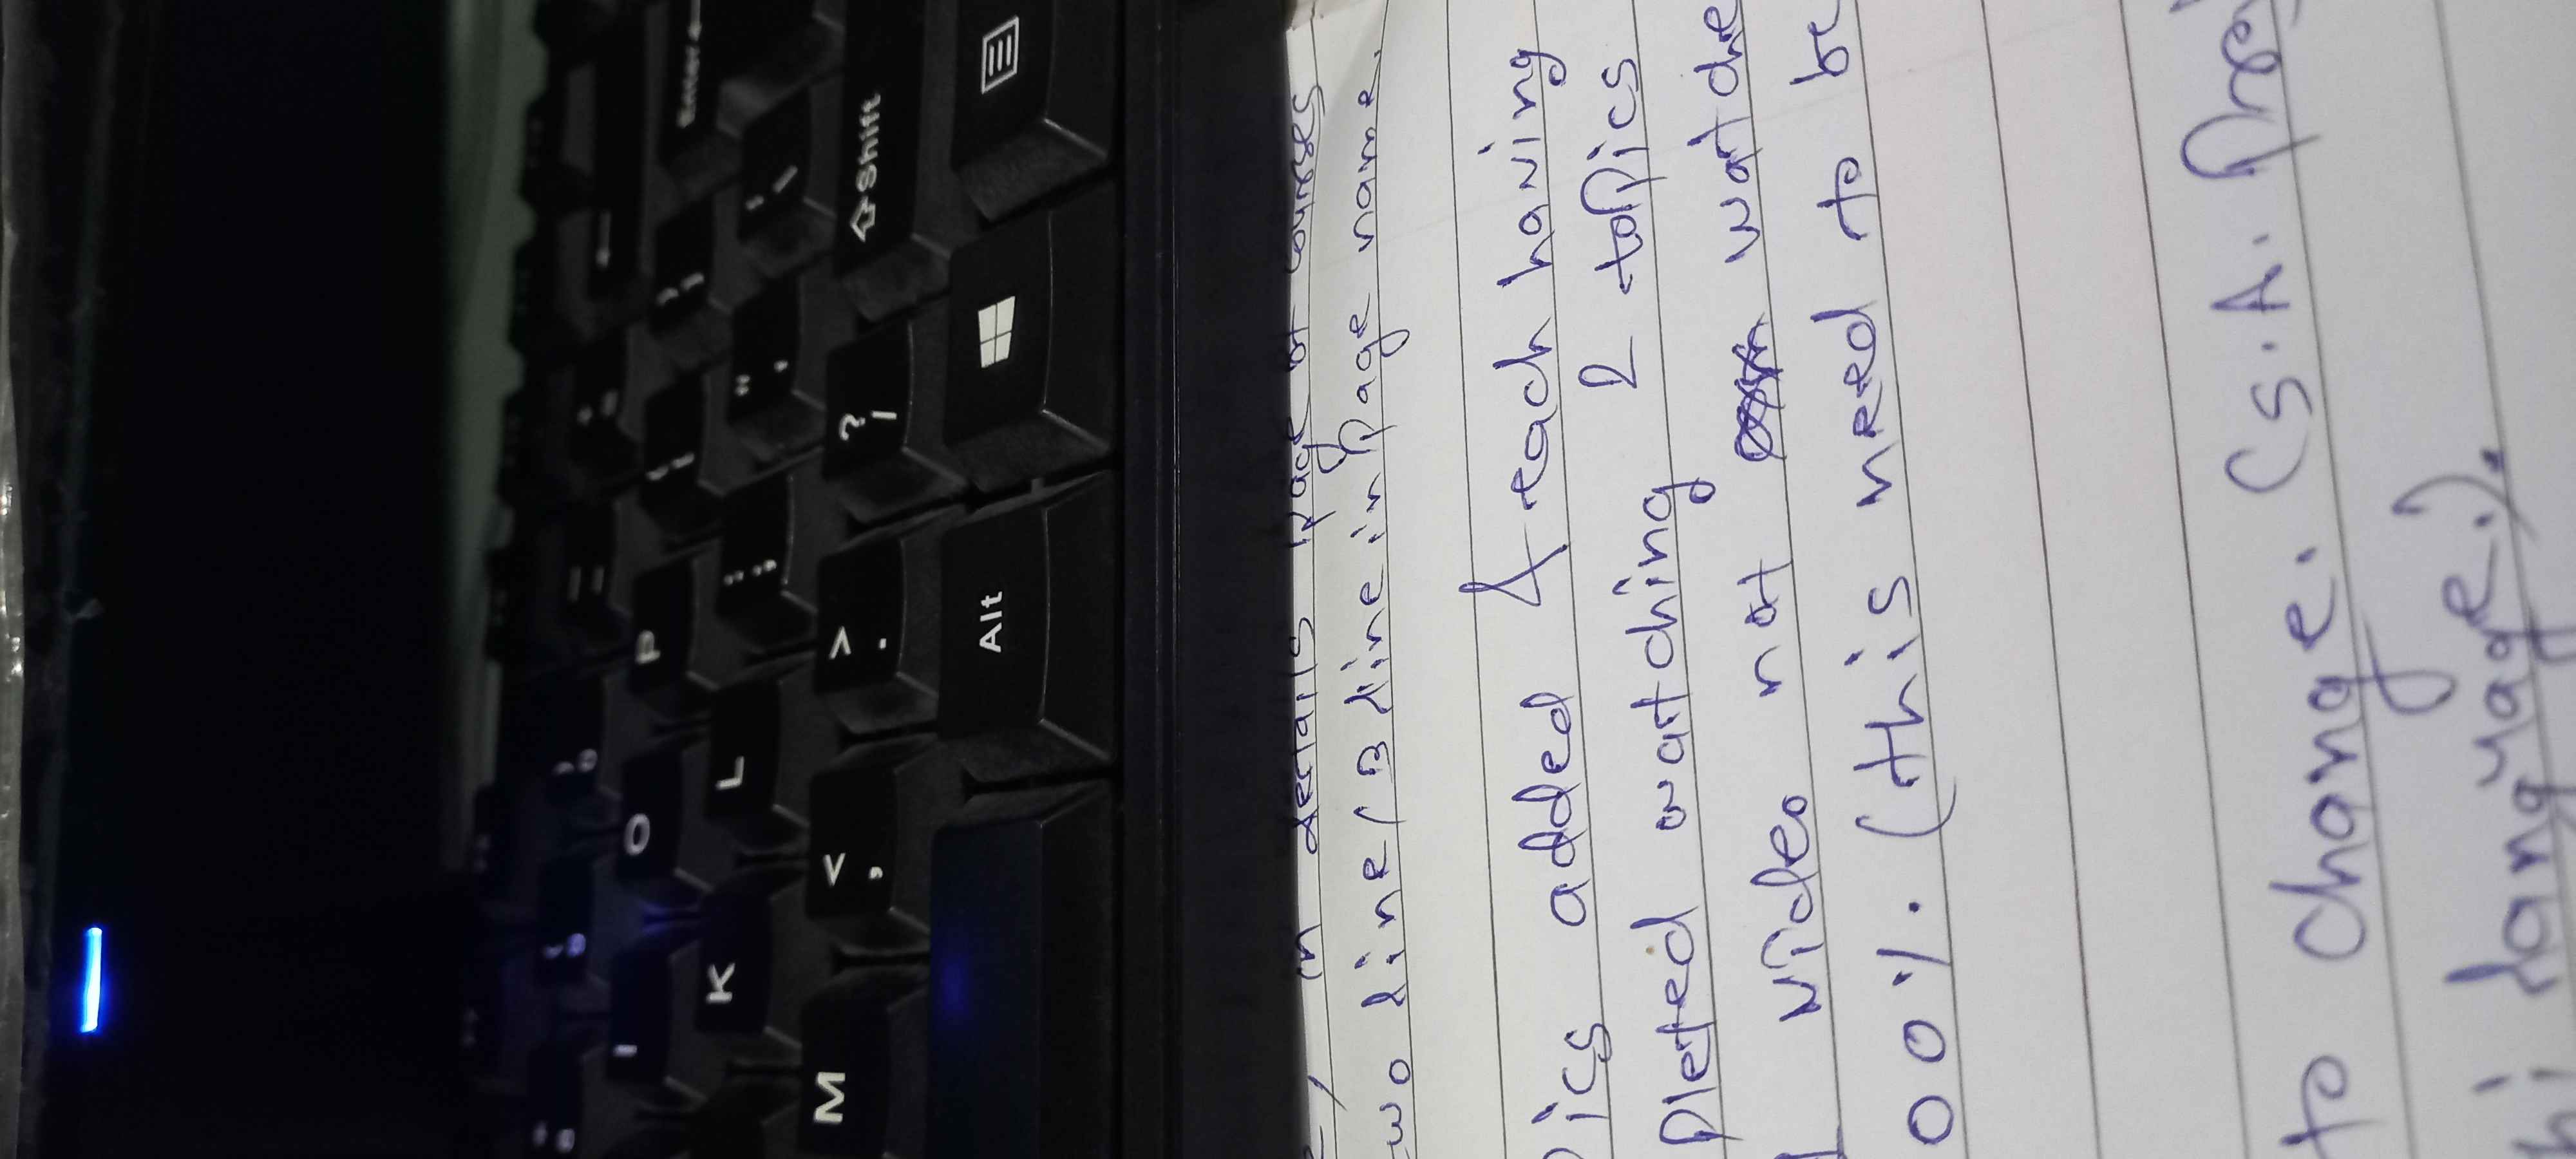 I O P Enter
K L ; " '
M < , > . ? / Shift
Alt
in details page of courses
two line / 3 line in page name.
pics added & each having
pleted watching 2 topics
1 video not watche
00%. (this need to be
to change. (S.A.
hi language.).